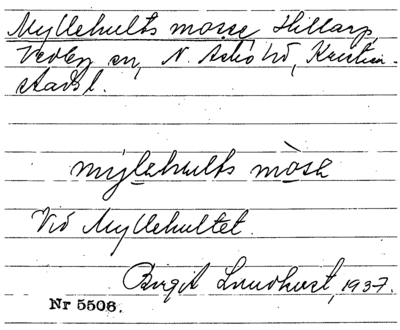 Myllehults mosse, Hillarp,
Vedby sn, N. Åsbo hd, Kristian-
stads l.
mỳlehults mòsa
Vid Myllehultet.
Birgit Lundhurst, 1937.
Nr 5506.